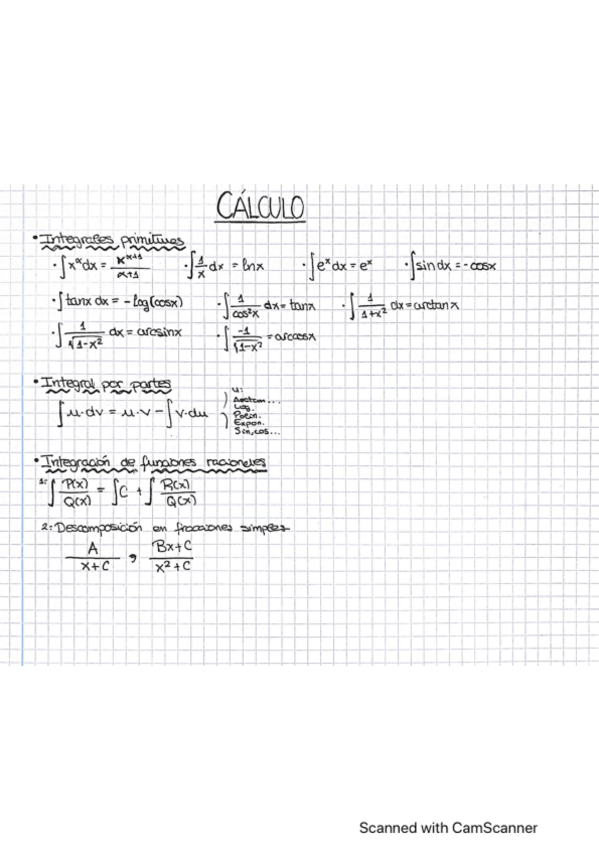 CÁLCULO
• Integrales primitivas
· ∫x^α dx = x^(α+1)/(α+1) · ∫1/x dx = ln x · ∫e^x dx = e^x · ∫sin dx = -cosx
· ∫tanx dx = -log(cosx) · ∫1/cos²x dx = tanx · ∫1/(1+x²) dx = arctan x
· ∫1/√(1-x²) dx = arcsinx · ∫-1/√(1-x²) = arccosx
• Integral por partes
∫u·dv = u·v - ∫v·du
u:
Arctan...
Log.
Polin.
Expon.
Sin, cos...
• Integración de funciones racionales
1: ∫P(x)/Q(x) = ∫C + ∫R(x)/Q(x)
2: Descomposición en fracciones simples
A/(x+C) , (Bx+C)/(x²+C)
Scanned with CamScanner